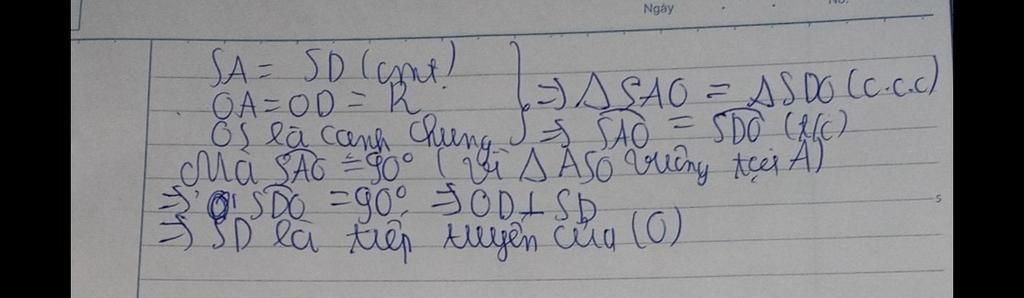 Ngày
No.
SA = SD (cmt)
OA = OD = R
OS là cạnh chung
} => ΔSAO = ΔSDO (c.c.c)
=> SAO = SDO (t/c)
Mà SAO = 90° (vì ΔASO vuông tại A)
=> SDO = 90° => OD ⊥ SD
=> SD là tiếp tuyến của (O)
5